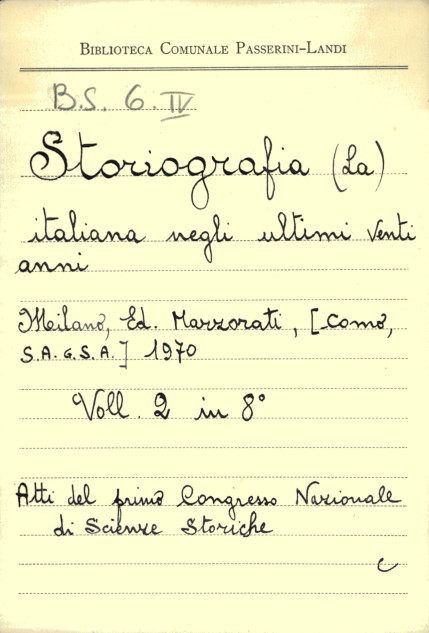 BIBLIOTECA COMUNALE PASSERINI-LANDI
B.S. 6. IV
Storiografia (La)
italiana negli ultimi venti
anni
Milano, Ed. Marzorati, [Como,
S.A.G.S.A.] 1970
Voll. 2 in 8°
Atti del primo Congresso Nazionale
di Scienze Storiche
C